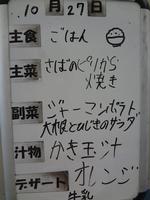 10月27日
主食 ごはん
主菜 さばのピリから
焼き
副菜 ジャーマンポテト
大根とひじきのサラダ
汁物 かき玉汁
デザート オレンジ
牛乳